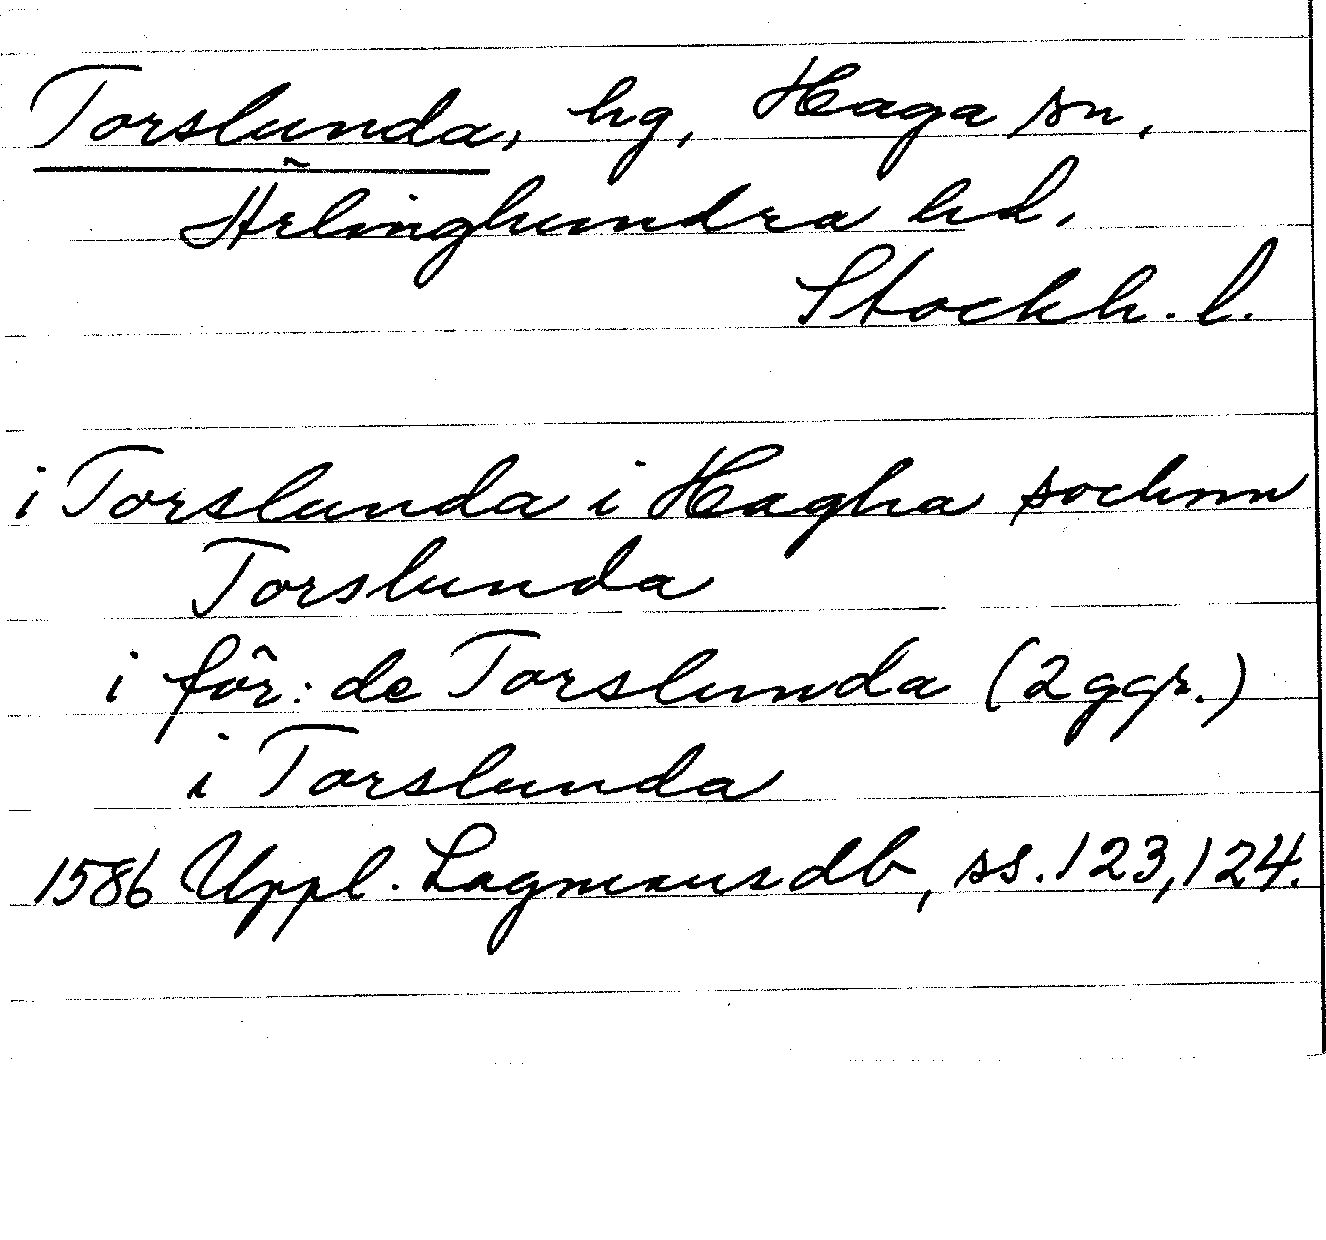 Torslunda, hg, Haga sn,
Ärlinghundra hd,
Stockh. l.
i Torslunda i Hagha sochnn
Torslunda
i för: de Torslunda (2ggr.)
i Torslunda
1586 Uppl. Lagmansdb, ss. 123, 124.